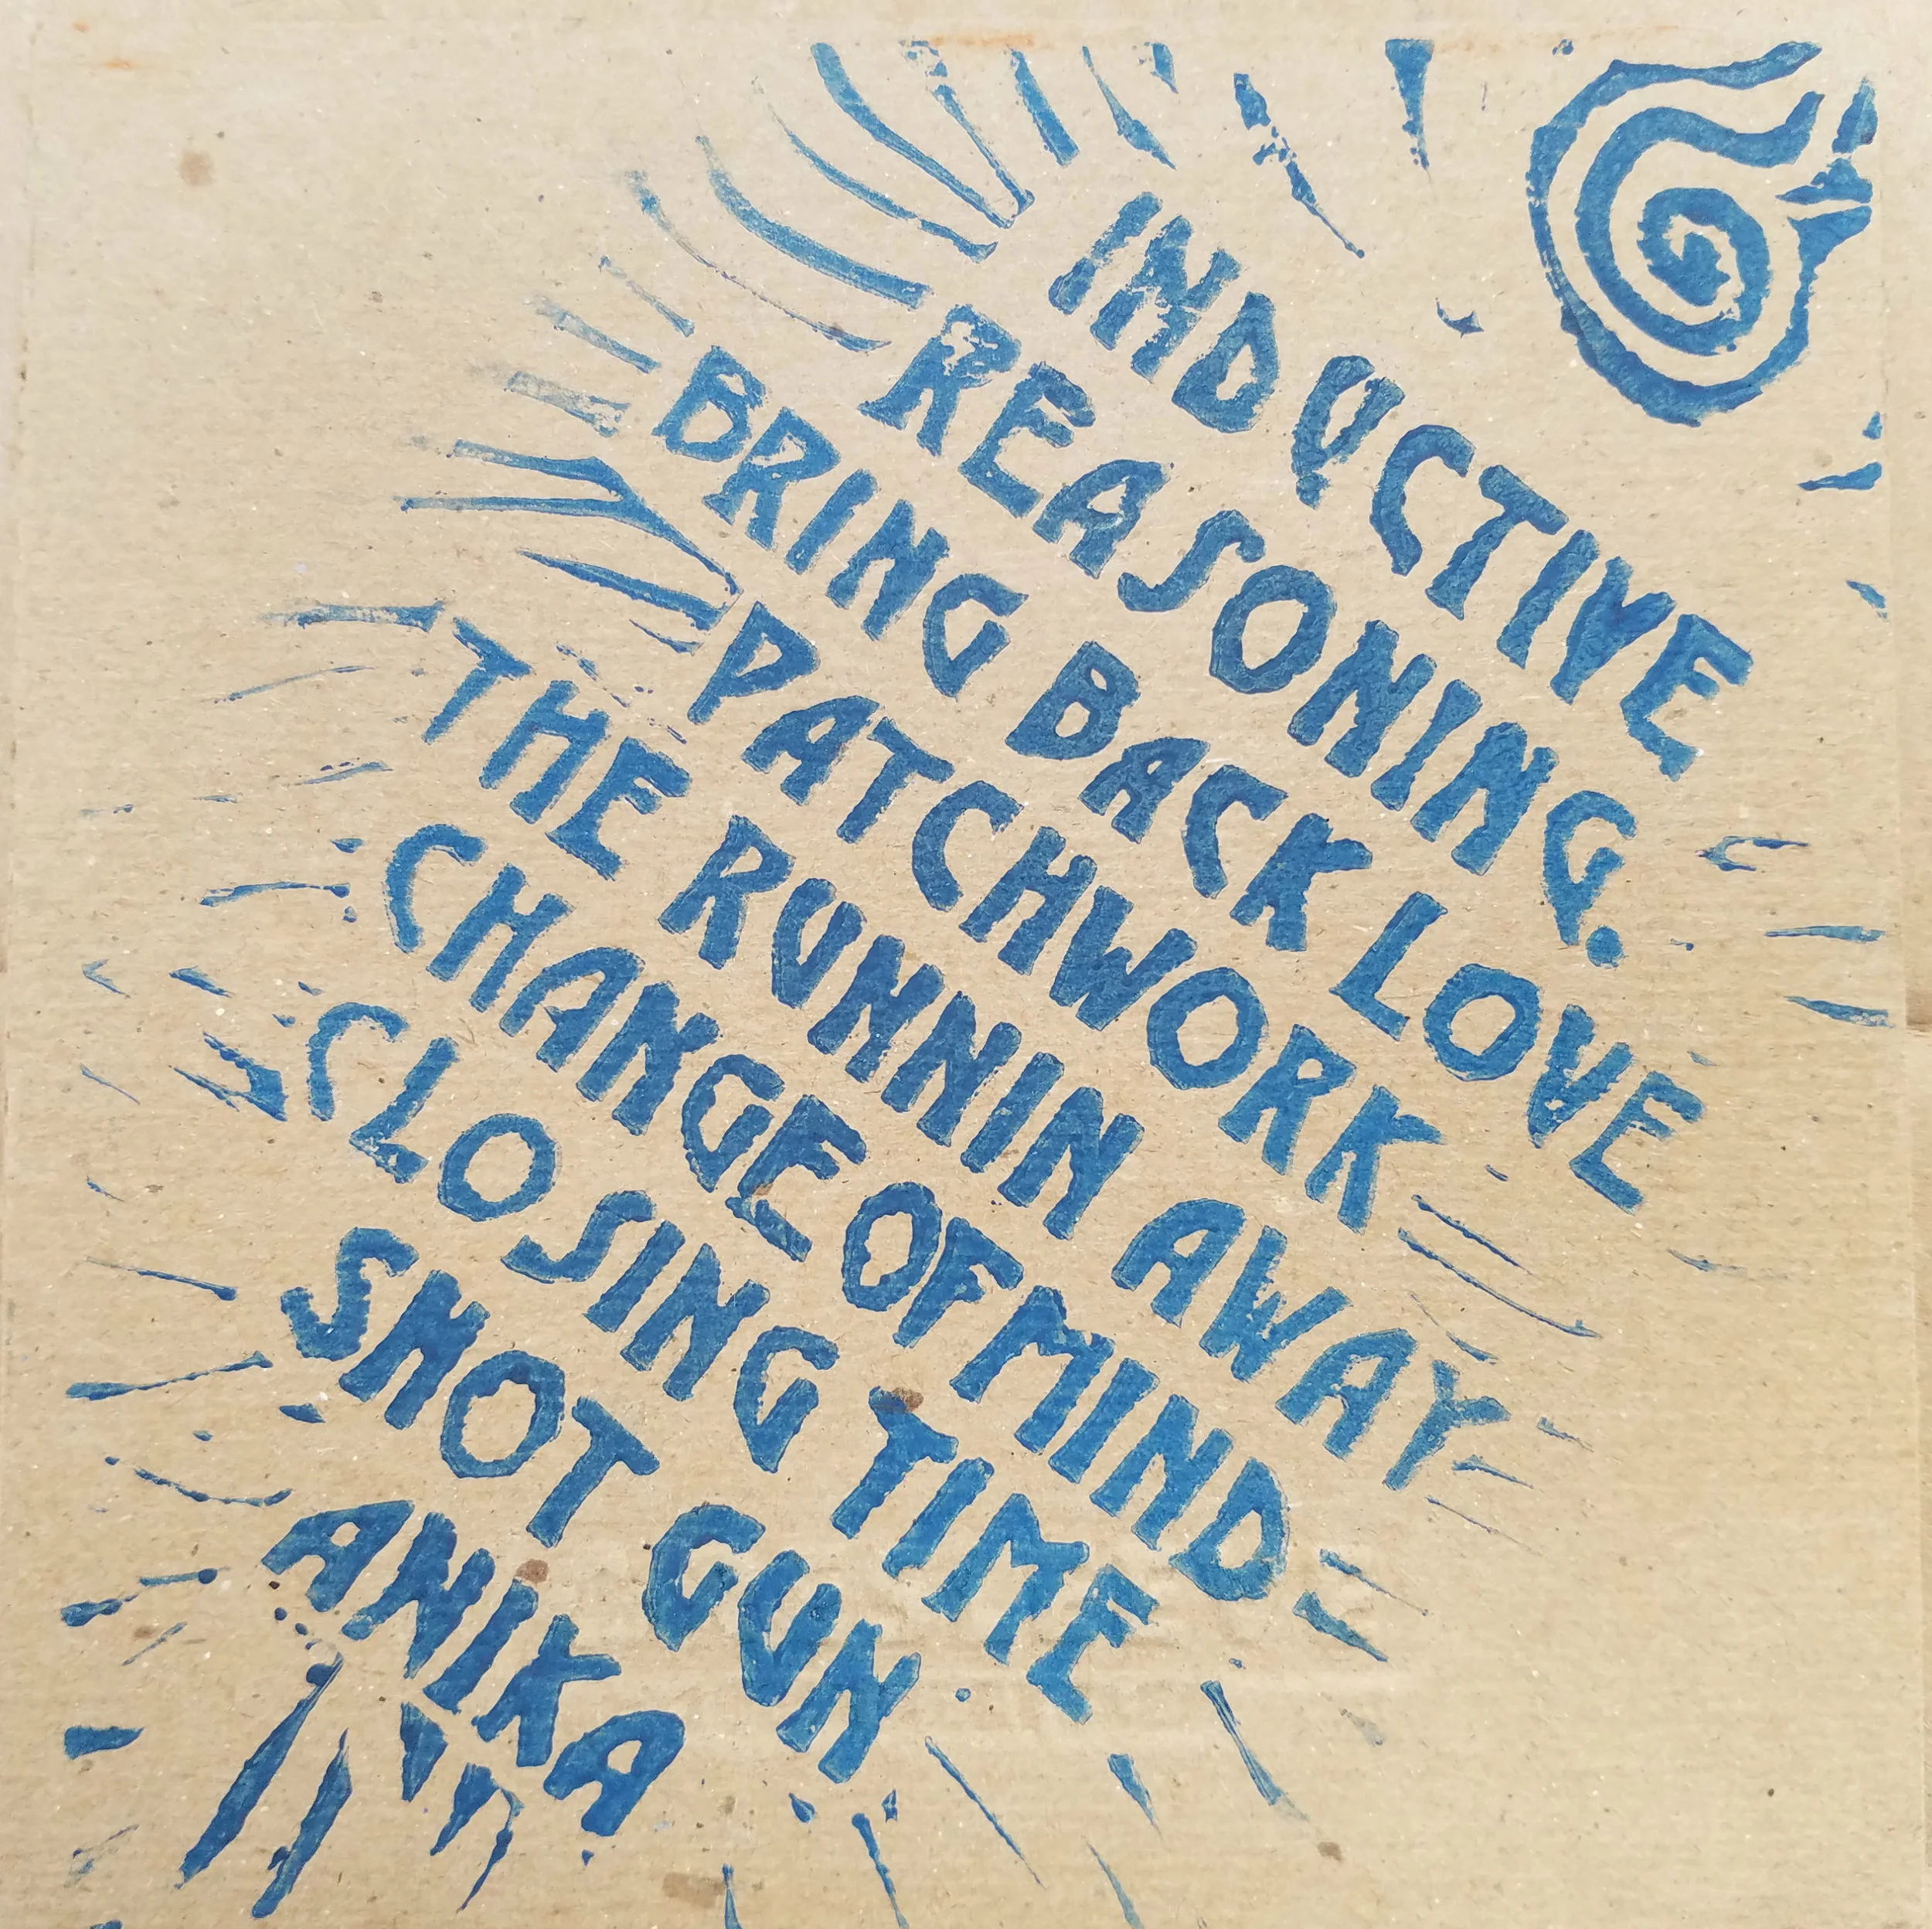 INDUCTIVE
REASONING.
BRING BACK LOVE
PATCHWORK
THE RUNNIN AWAY
CHANGE OF MIND
CLOSING TIME
SHOT GUN
ANIKA